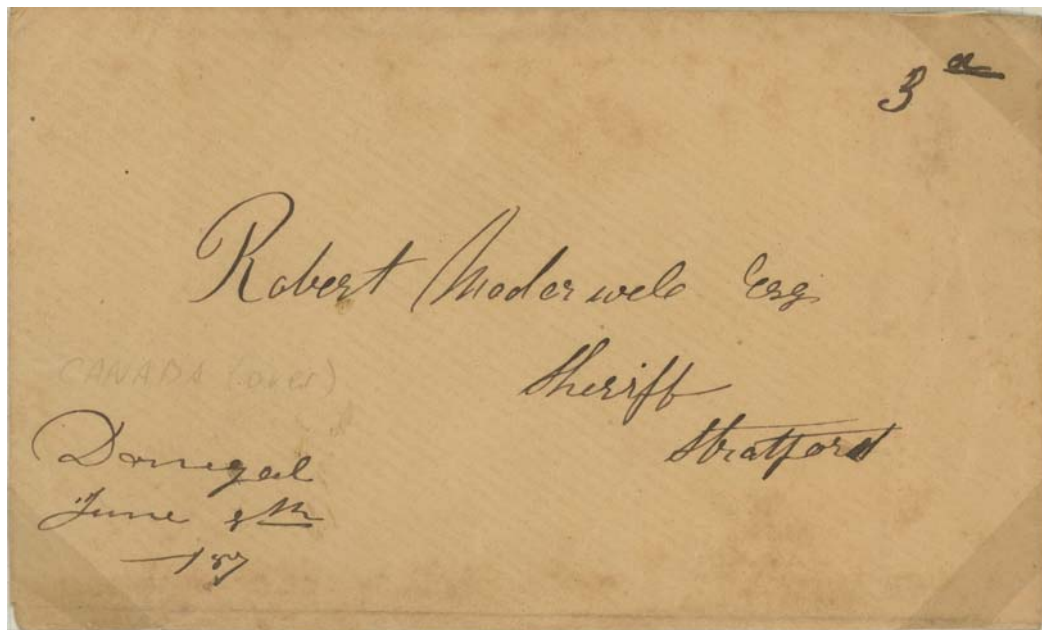 3 d
Robert Moderwele Esq
Sheriff
Stratford
CANADA (over)
Donegal
June 8th
157